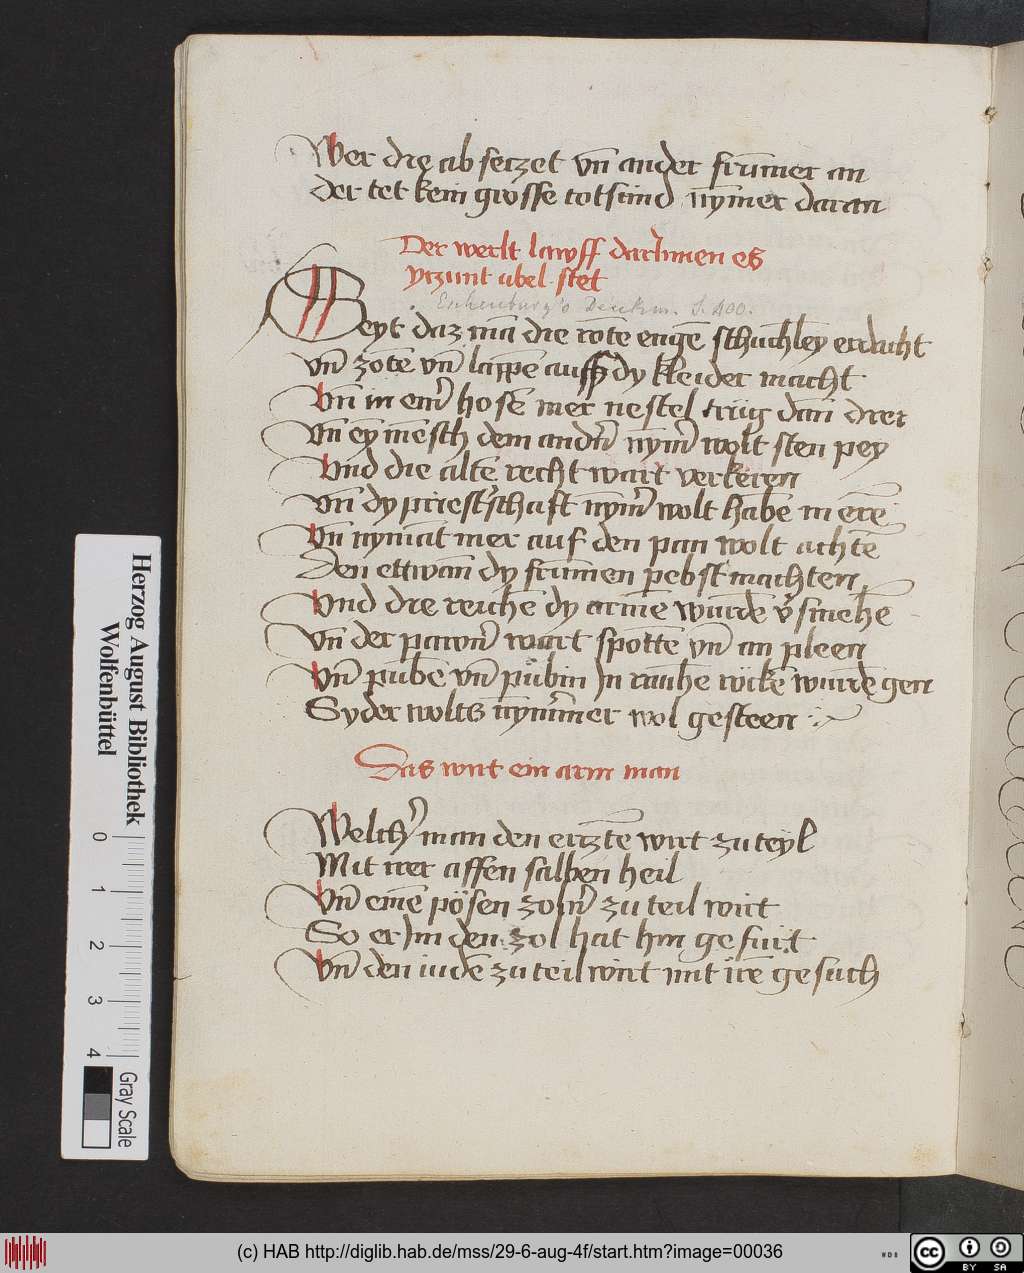 Wer die ab seczet vn̄ ander frūmer an
der tet kein grosse totsund nȳmer daran
Der werlt lawff darInnen es
yczunt ubel stet
Eschenburg's Denkm. S. 400.
Seyt daz mā die rote enge schuchley erdacht
vn̄ zote vn̄ lappē auff dy kleider macht
Vn̄ in em̄ hosē mer nestel trüg dan̄ drei
Vn̄ ey mēsch dem andn̄ nym̄ wolt sten pey
Vnd die alte recht wart verkeren
vn̄ dy priest'schaft nym̄ wolt habē in ere
Vn̄ nymāt mer auf den pan wolt achtē
Den ettwan̄ dy frum̄en pebst machten
Vnd die reichē dy arme wurde v'smehē
Vn̄ der pawrn̄ wart spottē vn̄ an pleen
Vn̄ pubē vn̄ pubin In rauhē rocke wurdē gen
Syder wolts nȳmmer wol gesteen
Das wirt ein arm man
Welch' man den erczte wirt zu teyl
Mit irer affen salben heil
Vn̄ eine pösen zoln̄ zu teil wirt
So er Im den zol hat hin gefurt
Vn̄ den iudē zu teil wirt mit irē gesuch
Herzog August Bibliothek
Wolfenbüttel
0 1 2 3 4
Gray Scale
(c) HAB http://diglib.hab.de/mss/29-6-aug-4f/start.htm?image=00036
WDB
cc BY SA